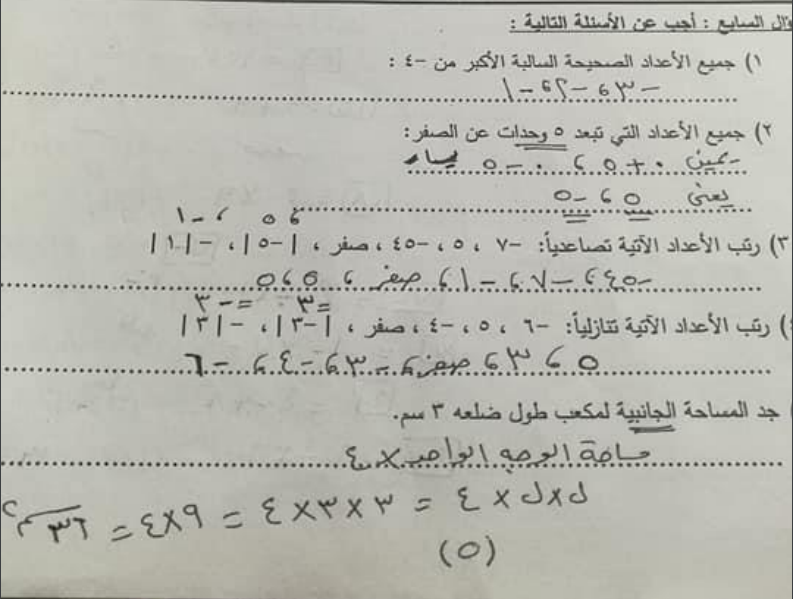 ؤال السابع : أجب عن الأسئلة التالية :
١) جميع الأعداد الصحيحة السالبة الأكبر من -٤ :
-٣ ، -٢ ، -١
٢) جميع الأعداد التي تبعد ٥ وحدات عن الصفر:
يمين ٠ + ٥ ، ٠ - ٥ يسار
يعني ٥ ، -٥
٥ ، -١
٣) رتب الأعداد الآتية تصاعدياً: -٧ ، ٥ ، -٤٥ ، صفر ، |-٥| ، -|١|
-٤٥ ، -٧ ، -١ ، صفر ، ٥ ، ٥
=٣ =-٣
) رتب الأعداد الآتية تنازلياً: -٦ ، ٥ ، -٤ ، صفر ، |-٣| ، -|٣|
٥ ، ٣ ، صفر ، -٣ ، -٤ ، -٦
) جد المساحة الجانبية لمكعب طول ضلعه ٣ سم.
مساحة الوجه الواحد × ٤
ل × ل × ٤ = ٣ × ٣ × ٤ = ٩ × ٤ = ٣٦ سم٢
(٥)